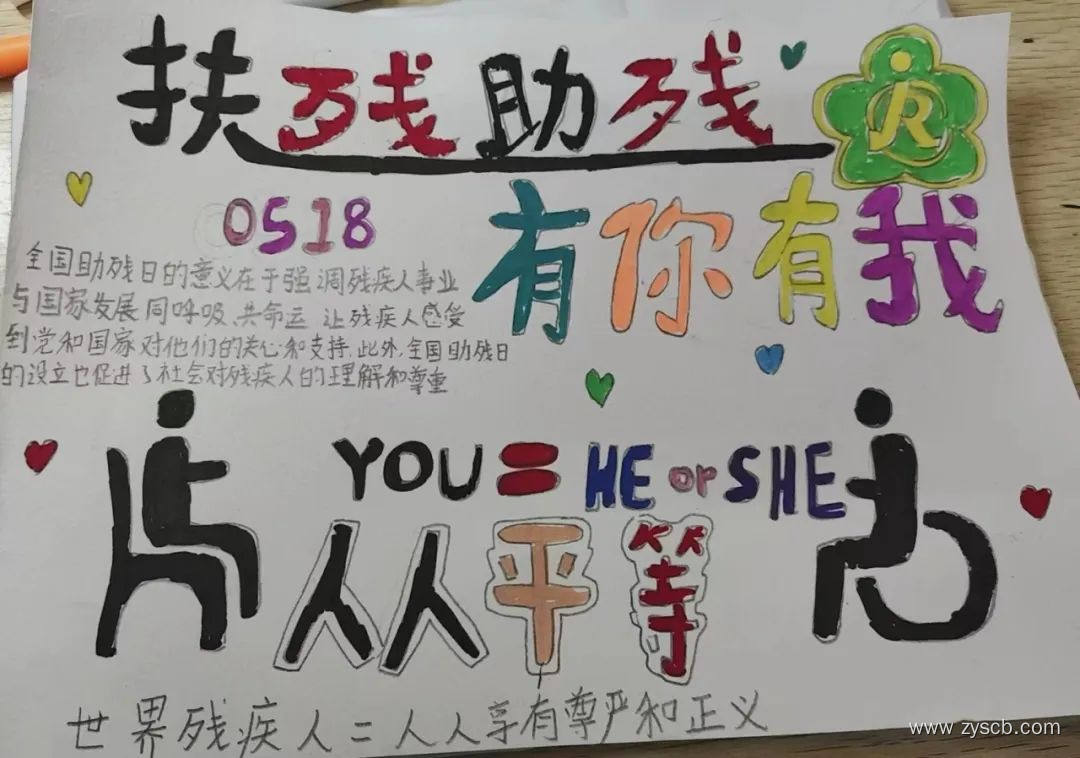 扶残助残
有你有我
0518
全国助残日的意义在于强调残疾人事业
与国家发展同呼吸、共命运 让残疾人感受
到党和国家对他们的关心和支持.此外,全国助残日
的设立也促进了社会对残疾人的理解和尊重
YOU = HE or SHE
人人平等
世界残疾人二人人享有尊严和正义
www.zyscb.com